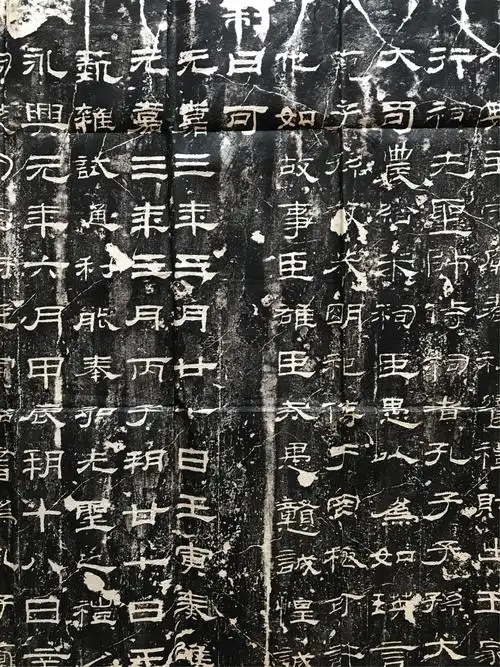 行祠先聖師侍祠者孔子子孫大
大司農給米祠臣愚以為如瑛言
子孫敬恭明祀傳于罔極可許
他如故事臣雄臣戒愚戇誠惶誠
制曰可
元嘉三年三月廿七日壬寅奏雒
元嘉三年三月丙子朔廿七日壬
藝雜試通利能奉弘先聖之禮
永興元年六月甲辰朔十八日辛